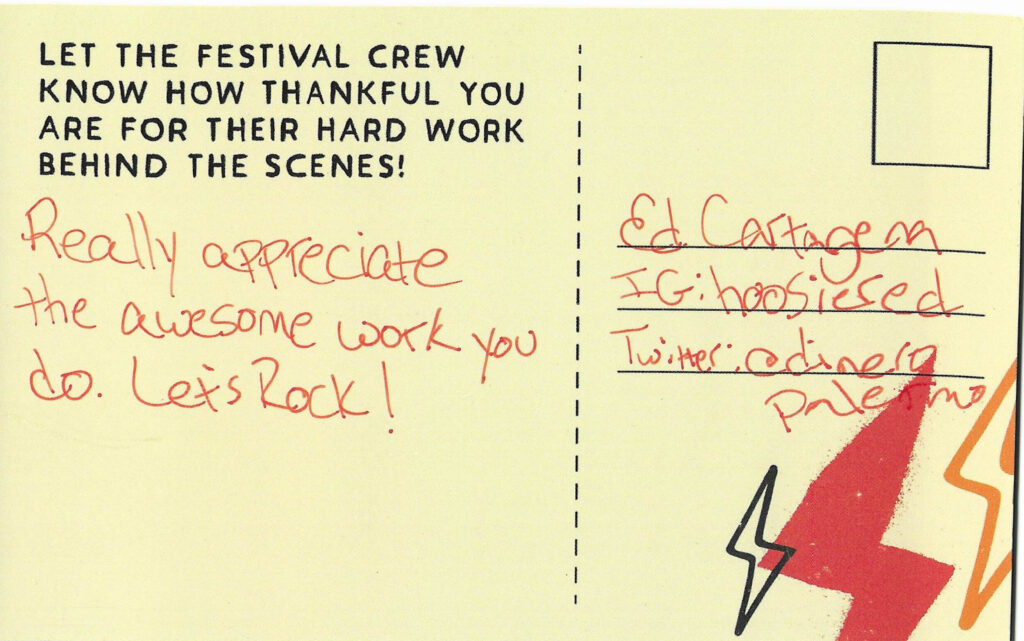 LET THE FESTIVAL CREW
KNOW HOW THANKFUL YOU
ARE FOR THEIR HARD WORK
BEHIND THE SCENES!
Really appreciate
the awesome work you
do. Let's Rock!
Ed Cartagena
IG: hoosiersed
Twitter: @dinero
palermo